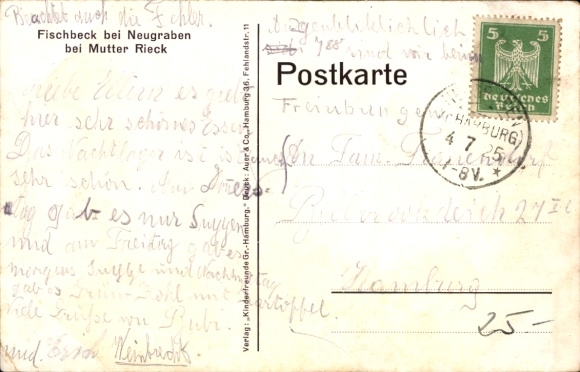 Beachtet doch die Fehler.
Fischbeck bei Neugraben
bei Mutter Rieck
Liebe Eltern es giebt
hier sehr schönes Essen
Das Nachtlager ist auch
sehr schön. Am Donners-
tag gab es nur Suppen
und am Freitag gab es
morgens Suppe und Nachmittag
gab es Grün-Kohl mit Kartoffel.
viele Grüße von Bubi.
und Weinbrecht.
Verlag: „Kinderfreunde Gr.-Hamburg." Druck: Auer & Co., Hamburg 36, Fehlandstr. 11
Augenblicklich
und von
Postkarte
5 5
Deutsches
Reich
(HARBURG)
4 7 25
-8V. *
An Fam.
27 II
Hamburg
25-